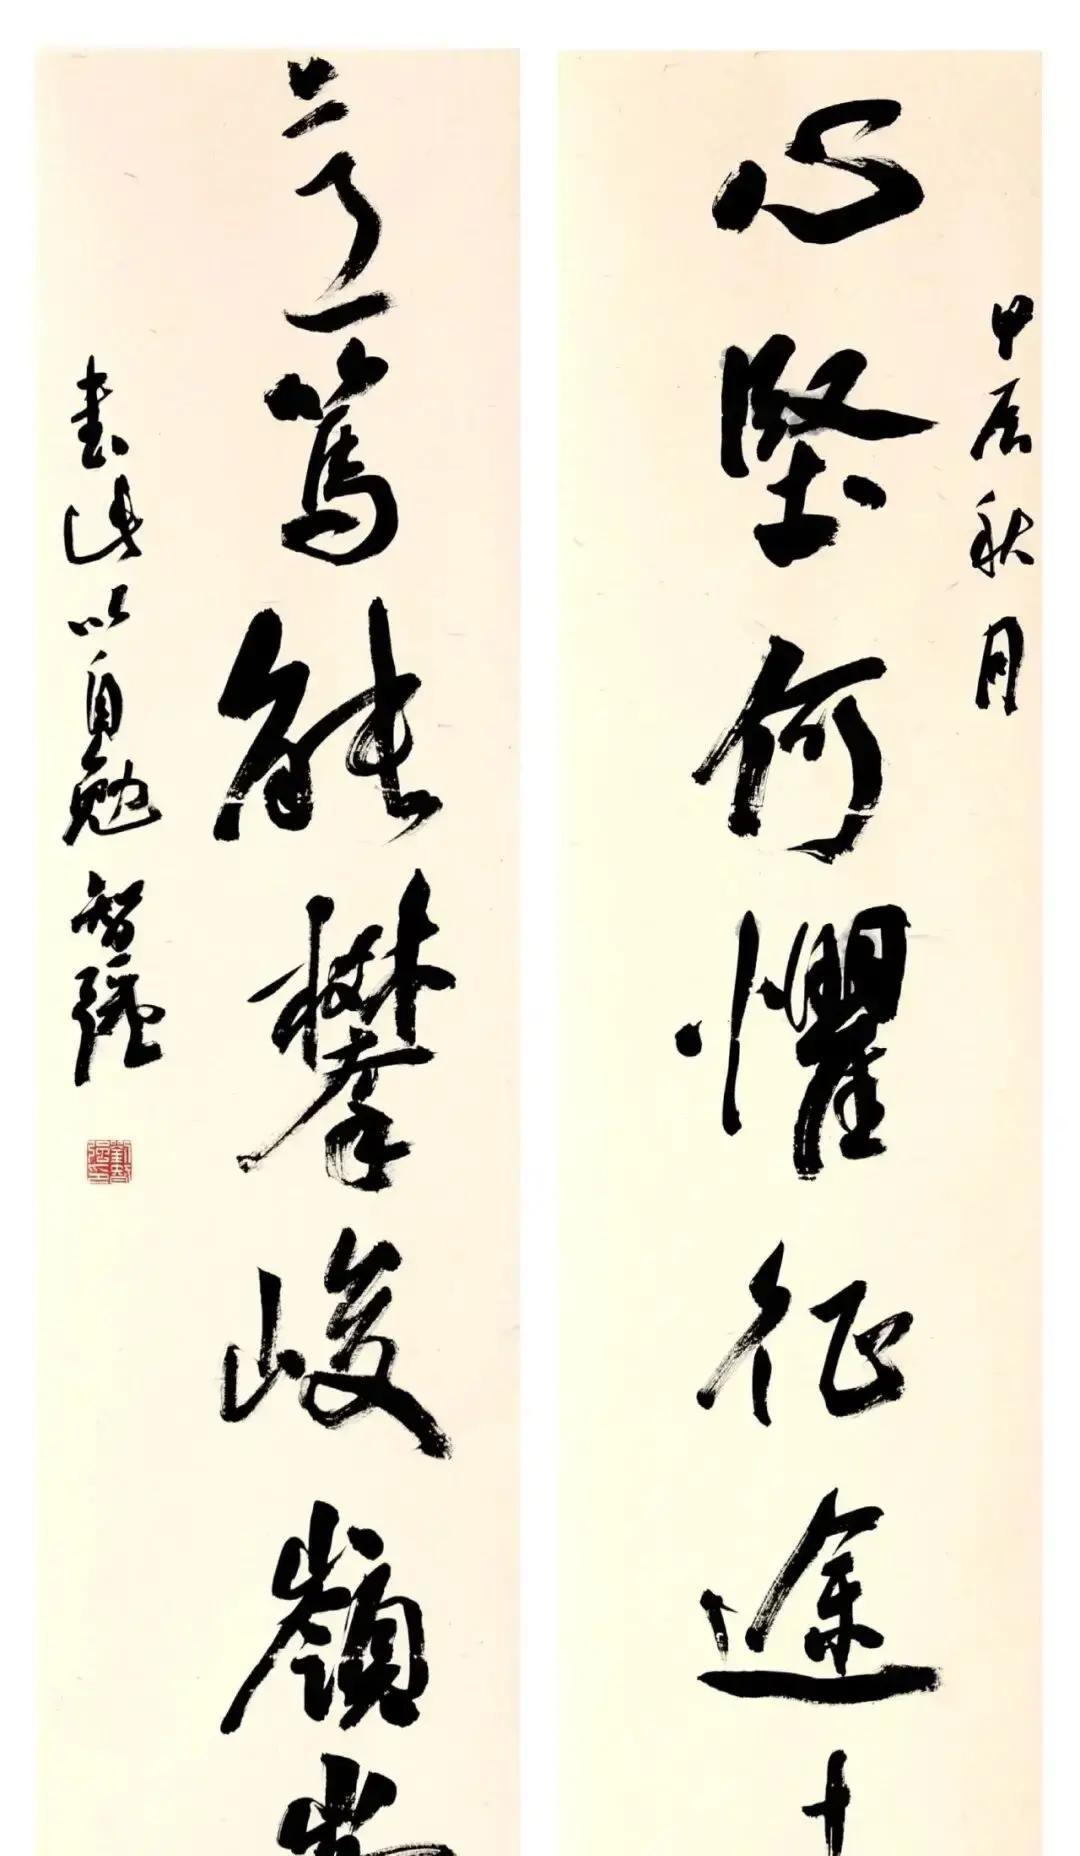 甲辰秋月
心堅何懼征途
道篤能攀峻嶺
書此以自勉 智強
劉智強印